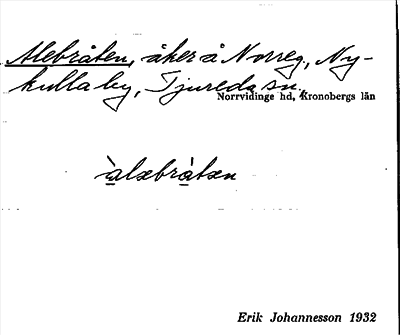 Alebråten, åker å Norreg, Ny-
kulla by, Tjureda sn,
Norrvidinge hd, Kronobergs län
àlɐbràtɐn
Erik Johannesson 1932